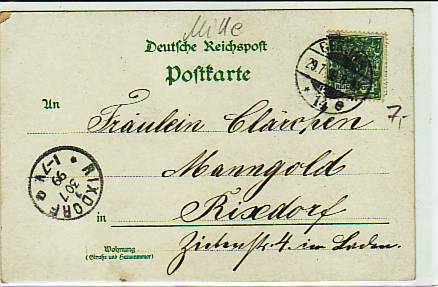 Mitte
Deutsche Reichspost
Postkarte
29.7.
7,-
An
Fräulein Clärchen
Manngold
in Rixdorf
Wohnung
(Straße und Hausnummer)
Zietenstr. 4. im Laden.
RIXDORF
1-7V
30.7
99
a